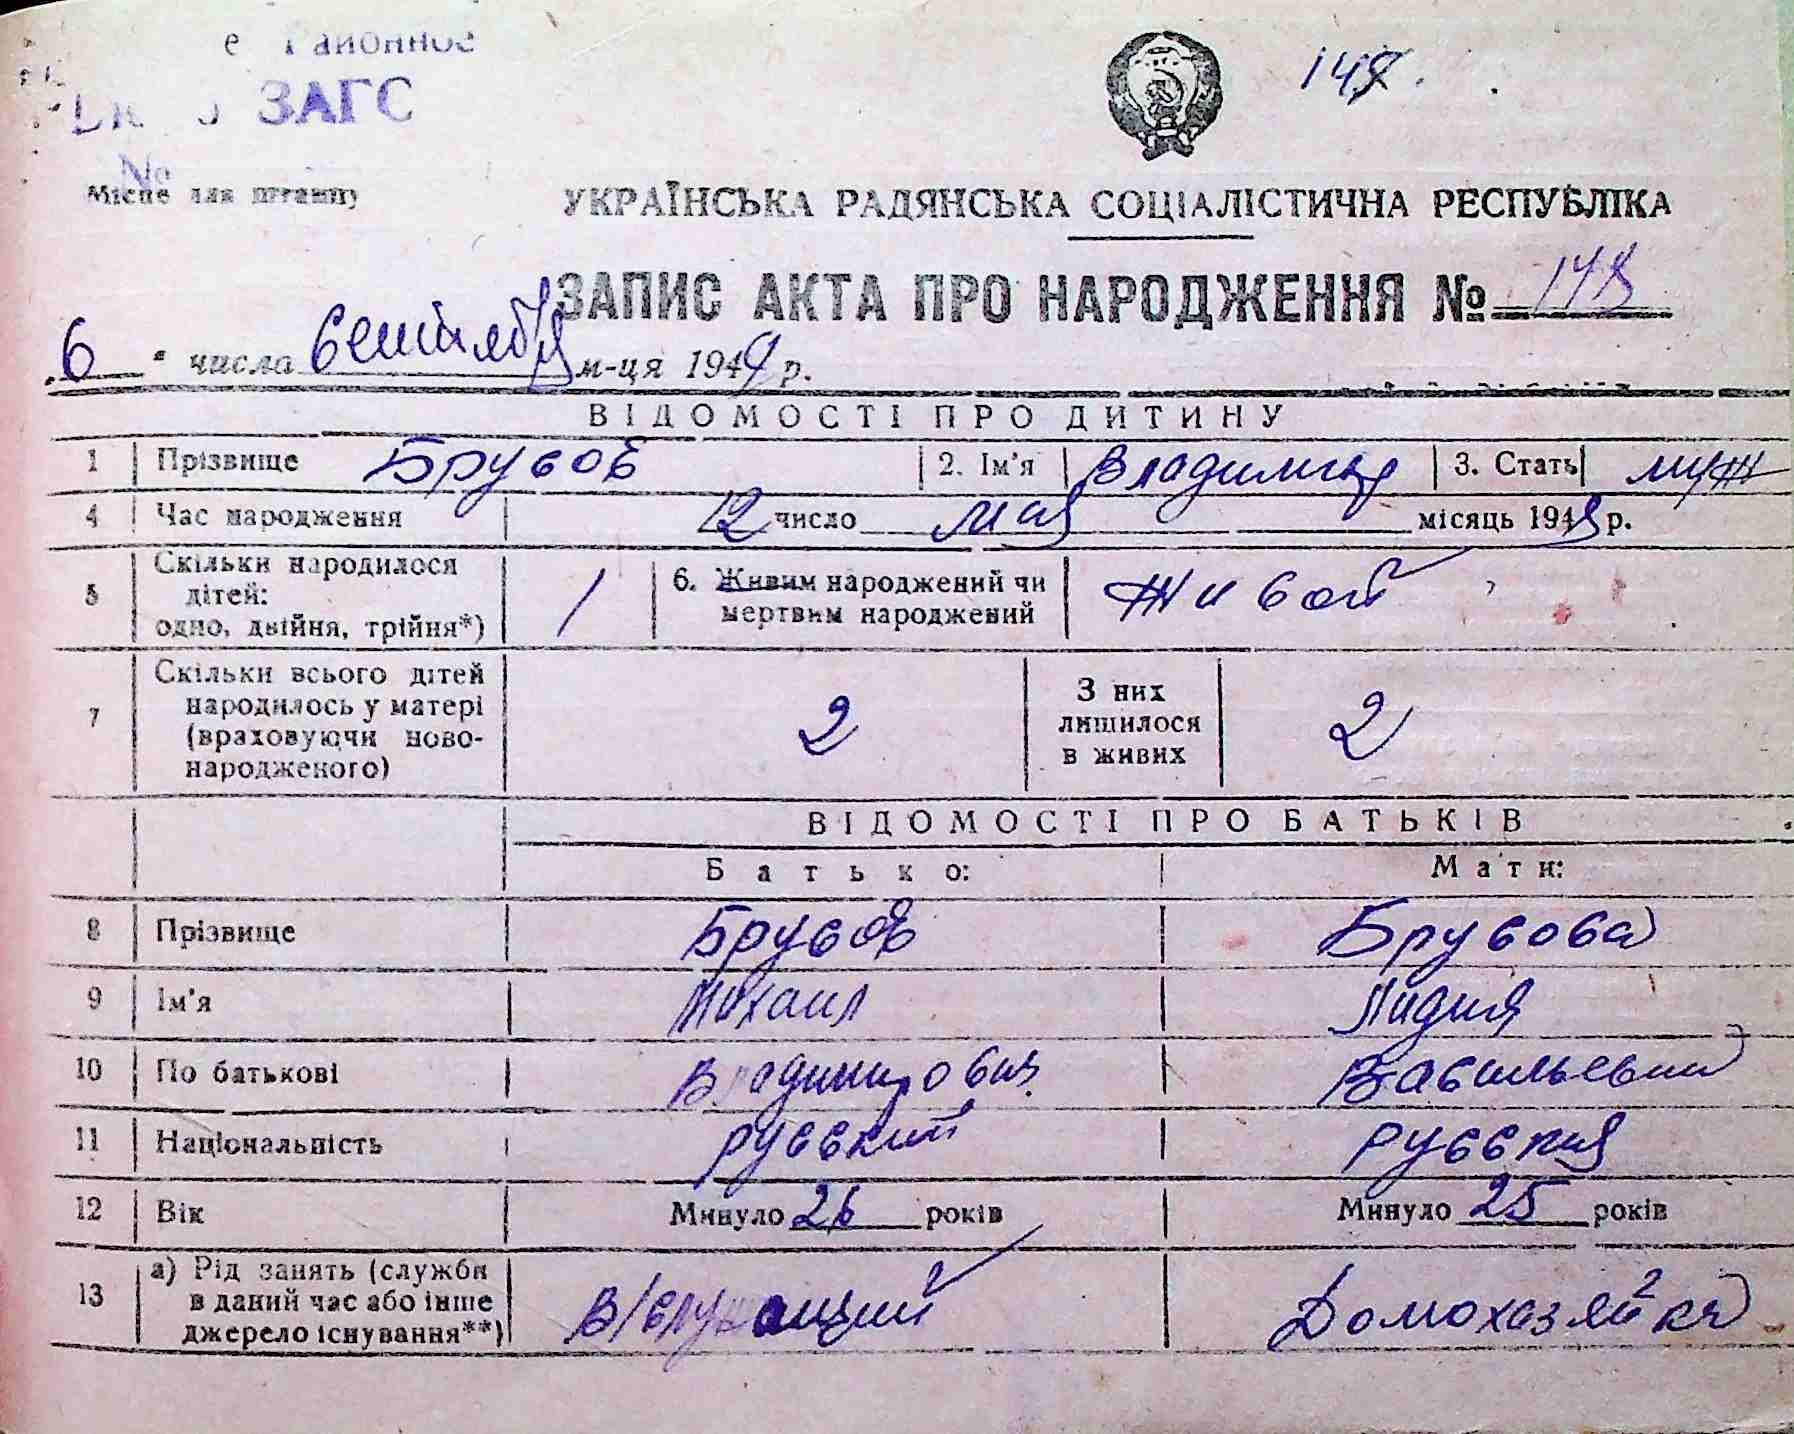 Районное
ЗАГС
№
148.
Місце для штампу
УКРАЇНСЬКА РАДЯНСЬКА СОЦІАЛІСТИЧНА РЕСПУБЛІКА
ЗАПИС АКТА ПРО НАРОДЖЕННЯ № 148
6 числа сентября м-ця 1949 р.
ВІДОМОСТІ ПРО ДИТИНУ
1 Прізвище Брусов 2. Ім'я Владимир 3. Стать муж
4 Час народження 12 число мая місяць 1949 р.
5 Скільки народилося дітей: одно, двійня, трійня*) 1 6. Живим народжений чи мертвим народжений Живой
7 Скільки всього дітей народилось у матері (враховуючи новонародженого) 2 З них лишилося в живих 2
ВІДОМОСТІ ПРО БАТЬКІВ
Батько: Мати:
8 Прізвище Брусов Брусова
9 Ім'я Михаил Лидия
10 По батькові Владимирович Васильевна
11 Національність русский русская
12 Вік Минуло 26 років Минуло 25 років
13 а) Рід занять (служби в даний час або інше джерело існування**) В/служащий Домохазяйка